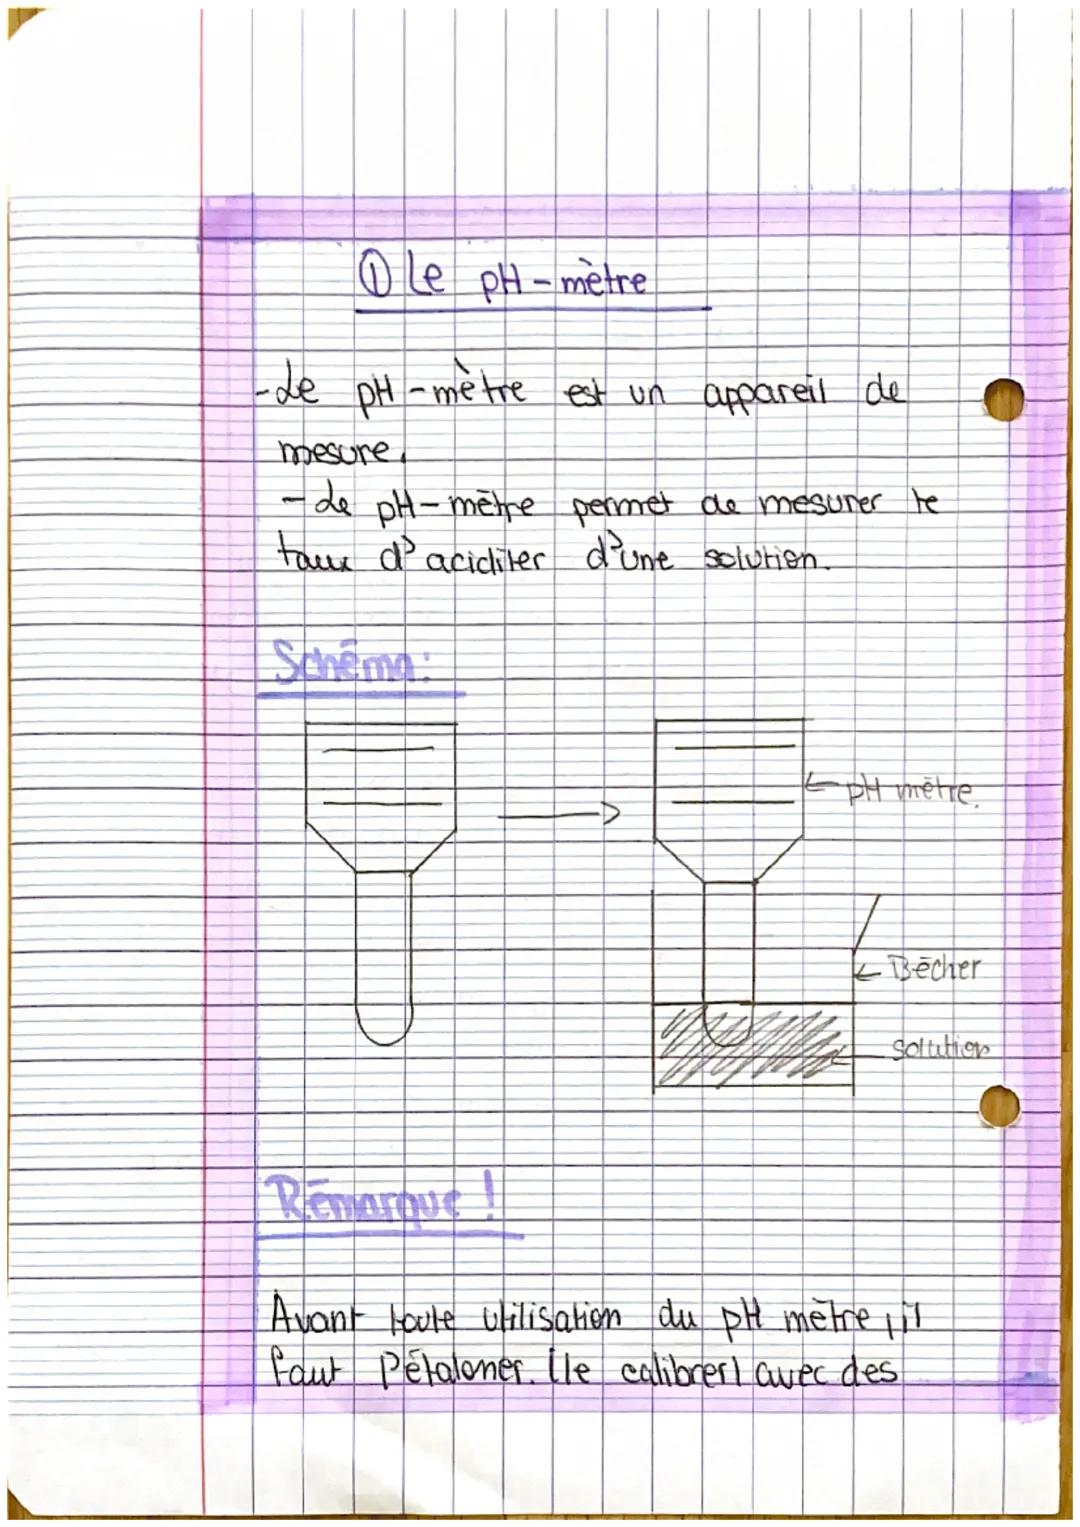 ① Le pH-mètre
- Le pH-mètre est un appareil de
mesure.
- Le pH-mètre permet de mesurer le
taux d'aciditer d'une solution.
Schéma:
← pH mètre.
← Bécher
← solution
Rémarque !
Avant toute utilisation du pH mètre, il
faut l'étaloner. (le calibrer) avec des